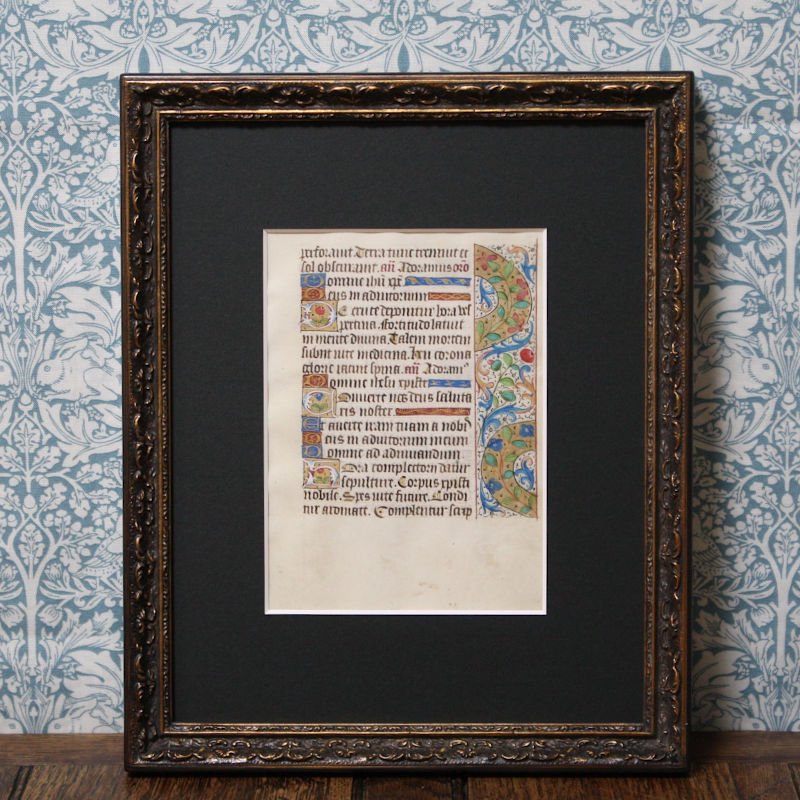 perforavit Terra tunc tremuit et
sol obscuravit. añ Adoramus oro
Domine ihu xpe
Deus in adiutorium
De cruce deponitur hora ves
pertina. fortitudo latuit
in mente divina Talem mortem
subiit vite medicina. Heu corona
glorie iacuit spina. añ Adoram⁹
Domine iesu xpiste
Convere nos deus saluta
ris noster.
Et avere iram tuam a nob
Deus in adiutorium meum
Domine ad adiuvandum
Hora completorii datur
sepulture. Corpus xpisti
nobile. Spes vite future. Condi
tur aromate. Complentur scrip